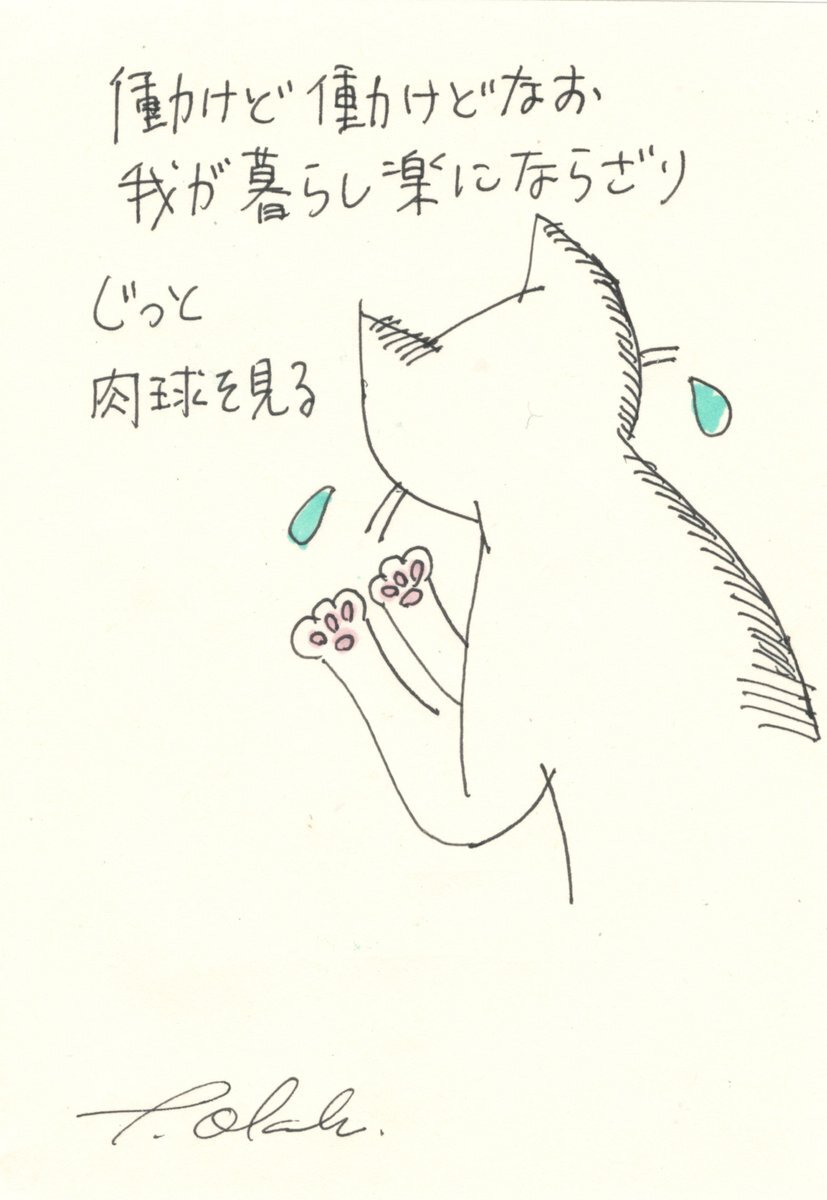 働けど働けどなお
我が暮らし楽にならざり
じっと
肉球を見る